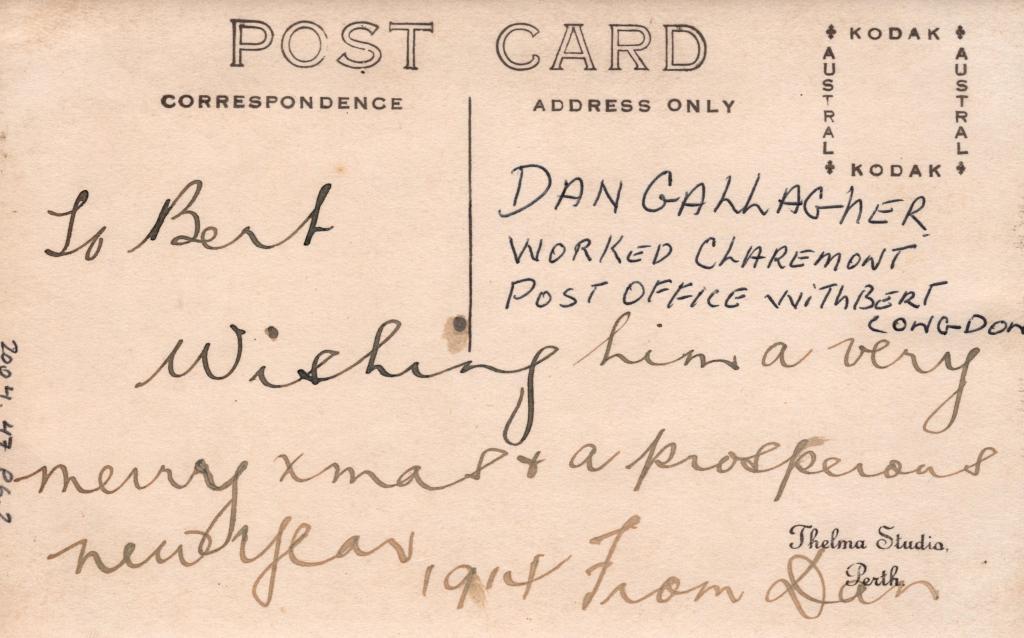 POST CARD
CORRESPONDENCE
ADDRESS ONLY
KODAK
AUSTRAL
AUSTRAL
KODAK
To Bert
DAN GALLAGHER
WORKED CLAREMONT
POST OFFICE WITH BERT
LONGDON
Wishing him a very
merry xmas & a prosperous
new year 1914 From Dan
Thelma Studio,
Perth.
2004.47